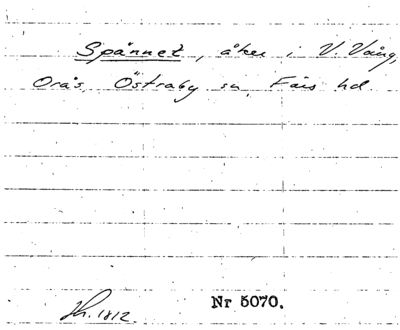 Spännet, åker i V. Vång,
Orås, Östraby sn, Färs hd
Jh. 1812.
Nr 5070.